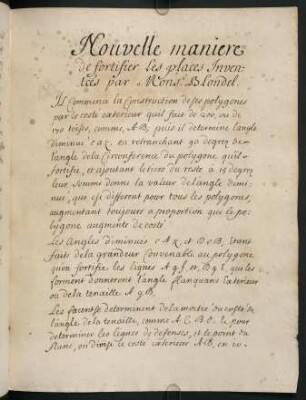 Nouvelle maniere
de fortifier les places Inven-
tées par Mons. Blondel.
Il commence la Construction de ses polygones
par le coste exterieur quil fait de 200, ou de
170 toises, comme, AB, puis il determine langle
diminué en retranchant 90 degrez de
langle de la Circonference du polygone quil
fortifie, et ajoutant le tiers du reste a 15 degrez
leur somme donne la valeur de langle dimi-
nué, qui est different pour tous les polygones,
augmentant toujours a proportion que le po-
lygone augmente de costé
Les Angles diminués et estans
faits de la grandeur Convenable au polygone
qu'on fortifie les lignes et qui les
forment donneront langle flanquant Exterieur
ou de la tenaille
Les faces se determinent de la moitié du costé de
langle de la tenaille, comme pour
determiner les lignes de defenses, et le point du
flanc, on divise le costé exterieur AB, en